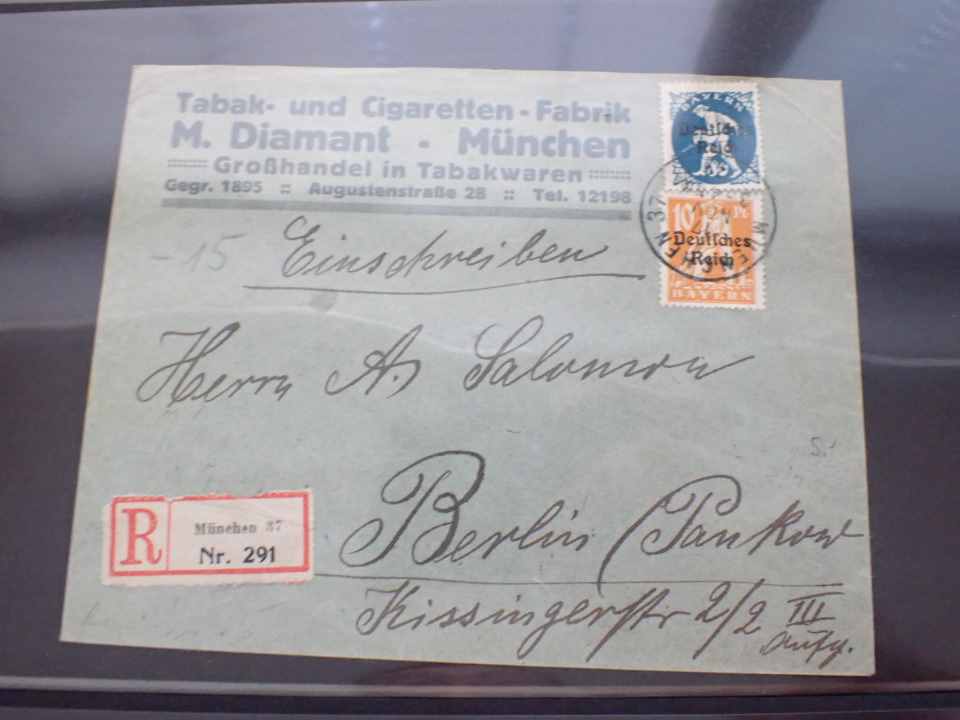 Tabak- und Cigaretten-Fabrik
M. Diamant · München
Großhandel in Tabakwaren
Gegr. 1895 :: Augustenstraße 28 :: Tel. 12198
BAYERN
Deutsches
Reich
10 Pf
Deutsches
Reich
BAYERN
MÜNCHEN 37
- 15
Einschreiben
Herrn A. Salomon
Berlin (Pankow
Kissingerstr 2/2 III
Aufg.
R
München 37
Nr. 291